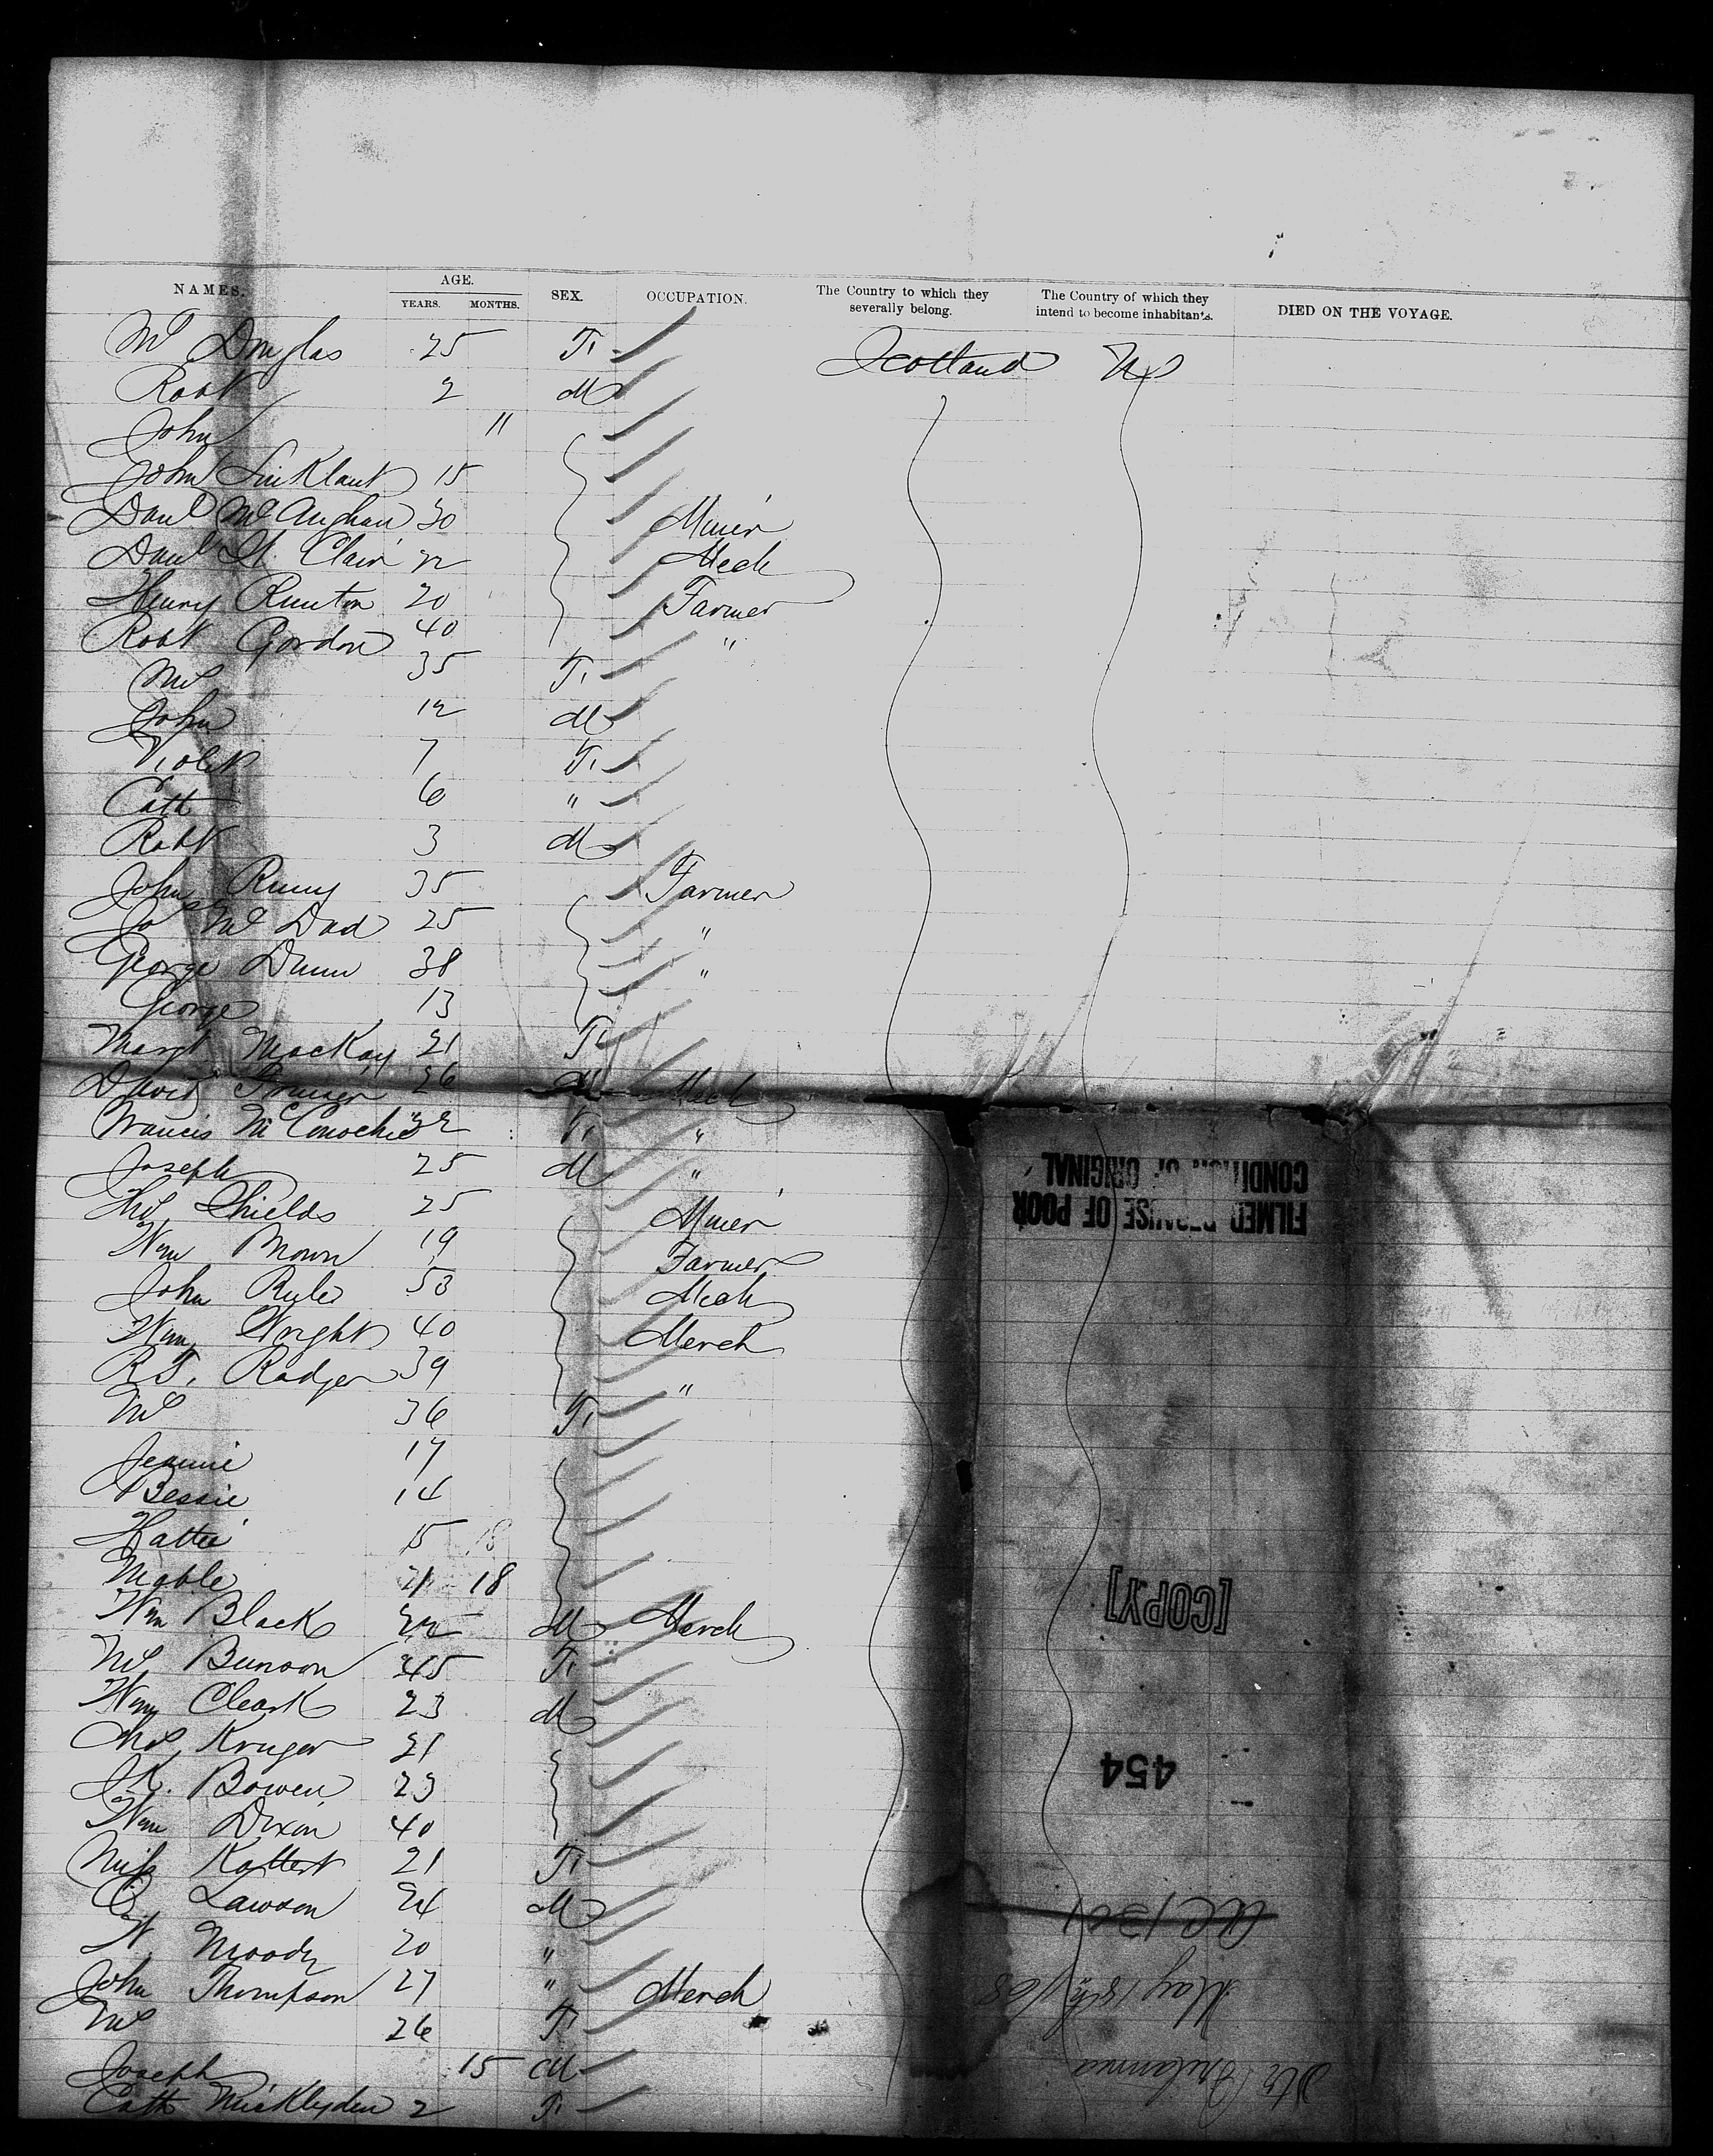 NAMES. AGE. YEARS. MONTHS. SEX. OCCUPATION. The Country to which they severally belong. The Country of which they intend to become inhabitants. DIED ON THE VOYAGE.
Mrs Douglas 25 F Scotland US
Robt 2 M
John 11
John 15
Danl 30 Miner
Danl St. Clair 22 Mech
Henry Runton 20 Farmer
Robt Gordon 40 "
Mrs 35 F
John 12 M
Violet 7 F
Cath 6 "
Robt 3 M
John 35 Farmer
Jas Mc Dad 25 "
George Dunn 38 "
George 13
Margt MacKay 21 F
David 26 M Mech
Francis McConochie 32 F "
Joseph 25 M "
Thos Shields 25 Miner
Wm Brown 19 Farmer
John Rule 53 Mech
Wm Wright 40 Merch
R.T. Rodger 39 "
Mrs 36 F
Jeannie 17
Bessie 14
Hattie 15
Mable 18
Wm Black 22 M Merch
Mrs Bunson 45 F
Wm Cleark 23 M
Chs Kruger 21
J.K. Bowen 23
Wm Dixon 40
Miss Kattert 21 F
C. Lawson 24 M
W. Moody 20 "
John Thompson 27 " Merch
Mrs 26 F
Joseph 15 M
Cath 2 F
FILMED BECAUSE OF POOR
CONDITION OF ORIGINAL
[COPY]
454
May 18th /68
Str Britannia